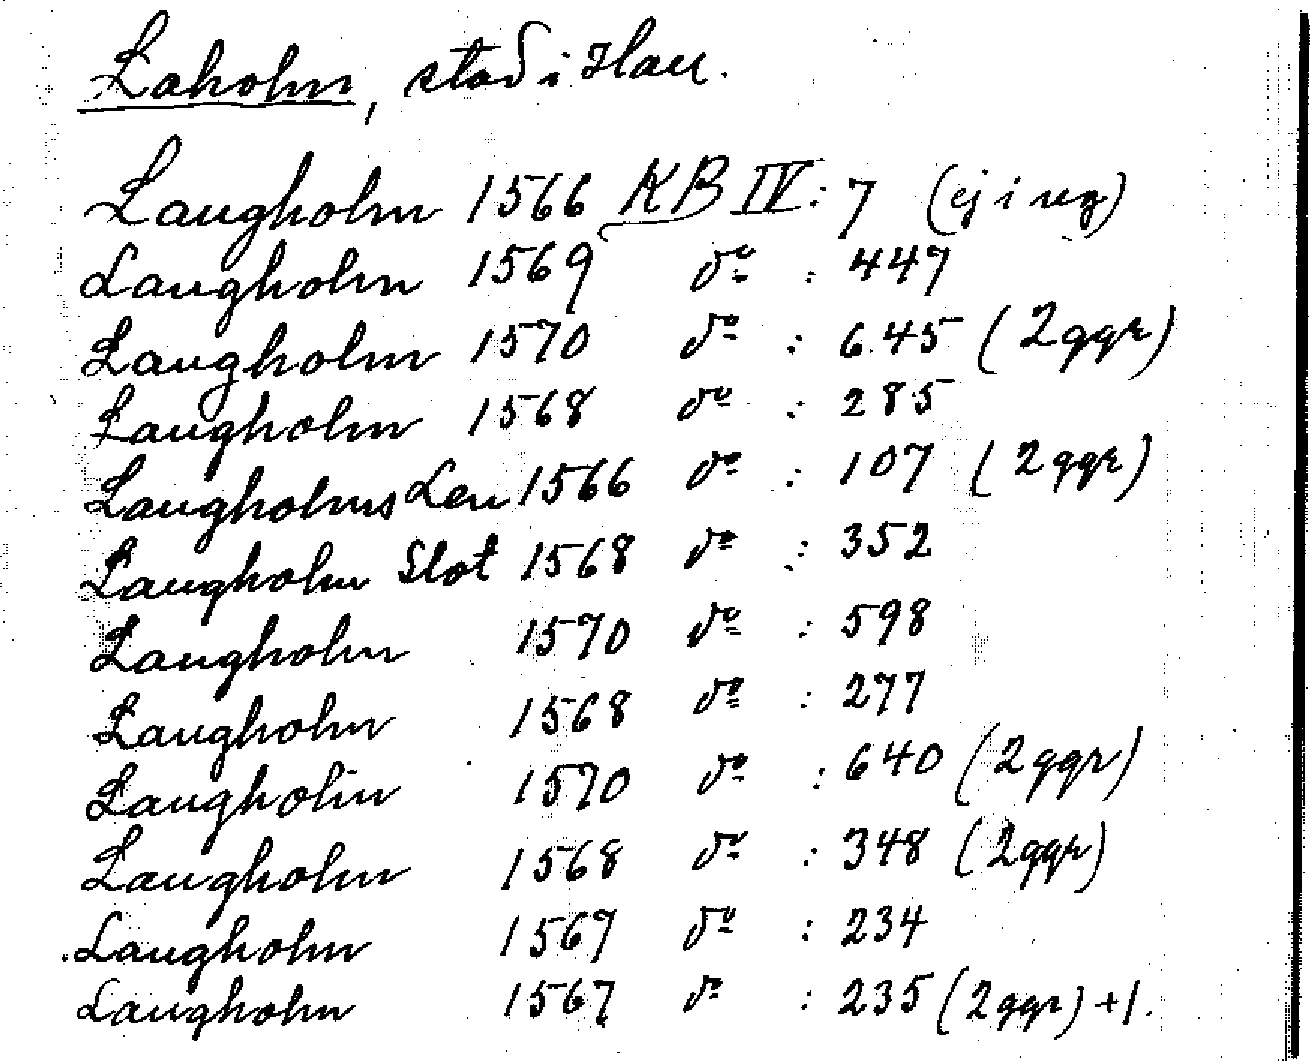 Laholm, stad i Hall.
Laugholm 1566 KB IV: 7 (ej i reg)
Laugholm 1569 do : 447
Laugholm 1570 do : 645 (2 ggr)
Laugholm 1568 do : 285
Laugholms Len 1566 do : 107 (2 ggr)
Laugholm Slot 1568 do : 352
Laugholm 1570 do : 598
Laugholm 1568 do : 277
Laugholm 1570 do : 640 (2 ggr)
Laugholm 1568 do : 348 (2 ggr)
Laugholm 1567 do : 234
Laugholm 1567 do : 235 (2 ggr) +1.